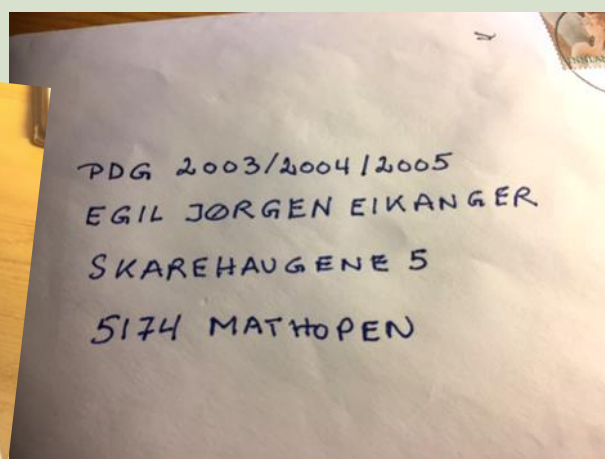 PDG 2003/2004/2005
EGIL JØRGEN EIKANGER
SKAREHAUGENE 5
5174 MATHOPEN